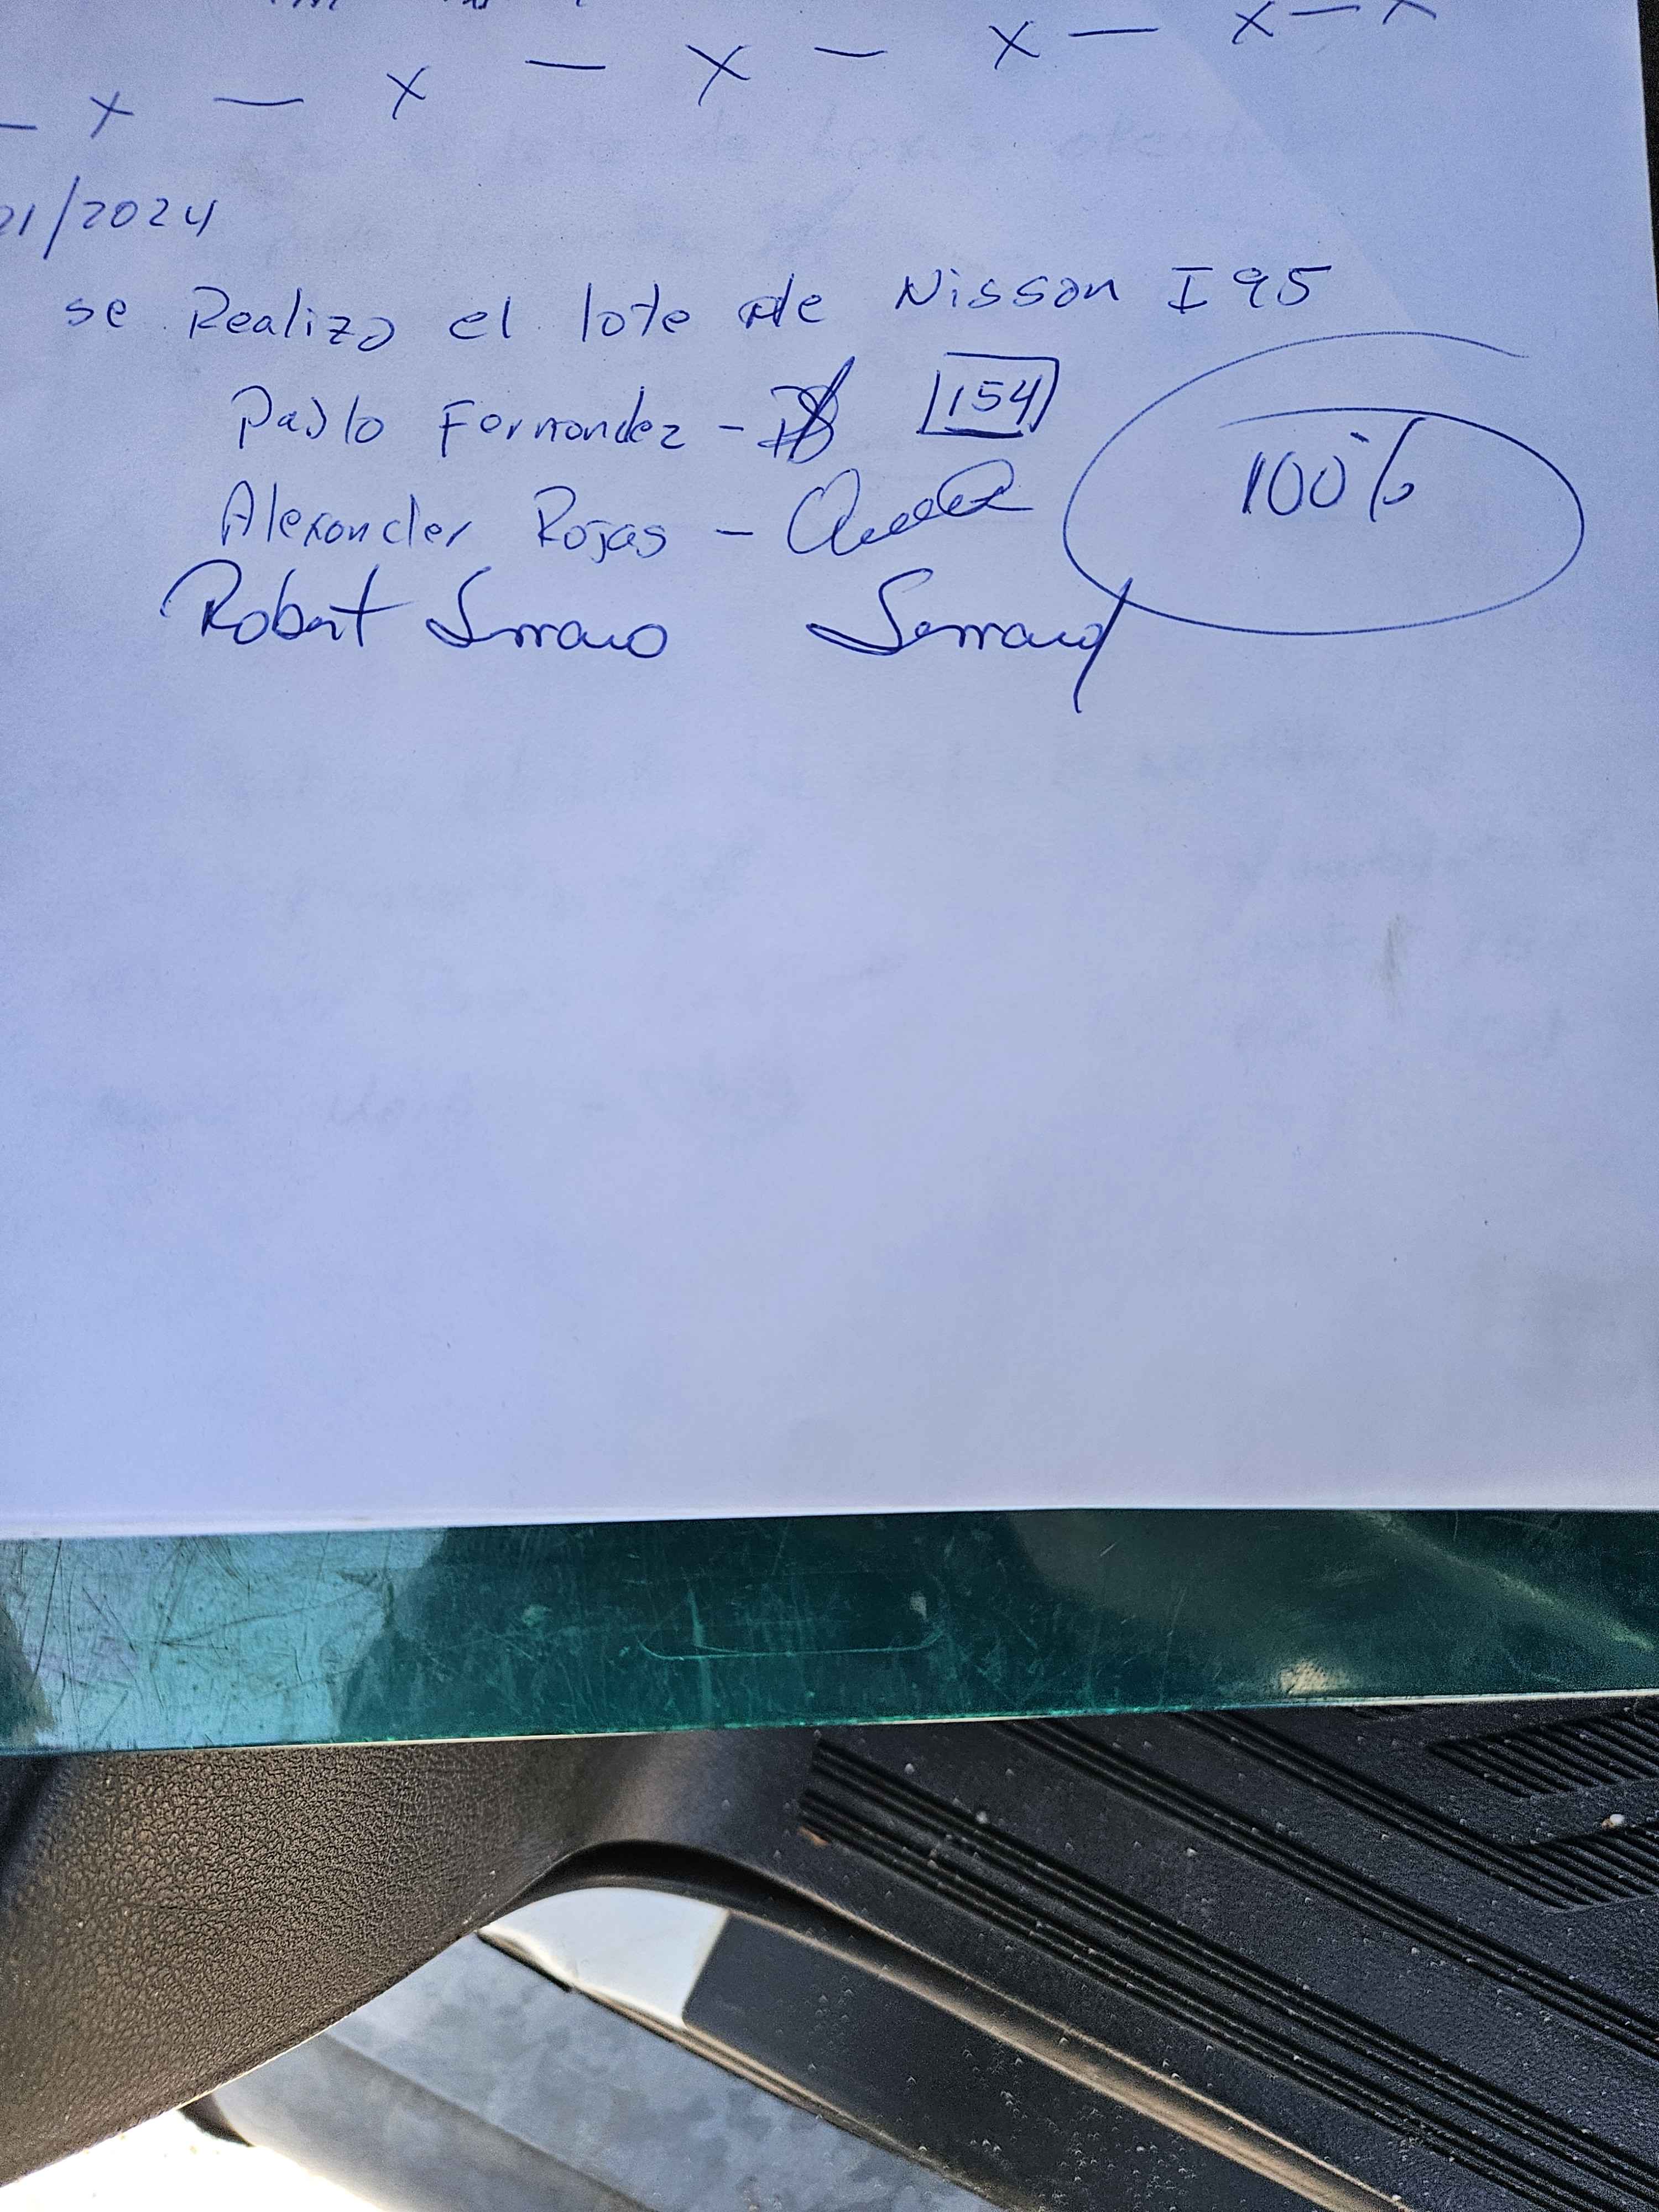 x — x
— x — x — x — x
21/2024
se Realizo el lote de Nissan I95
Pablo Fernandez - 154
100%
Alexander Rojas -
Robert Serrano Serrano